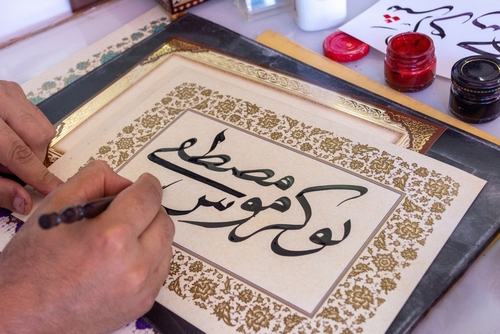 مصطفى
بوكرموس